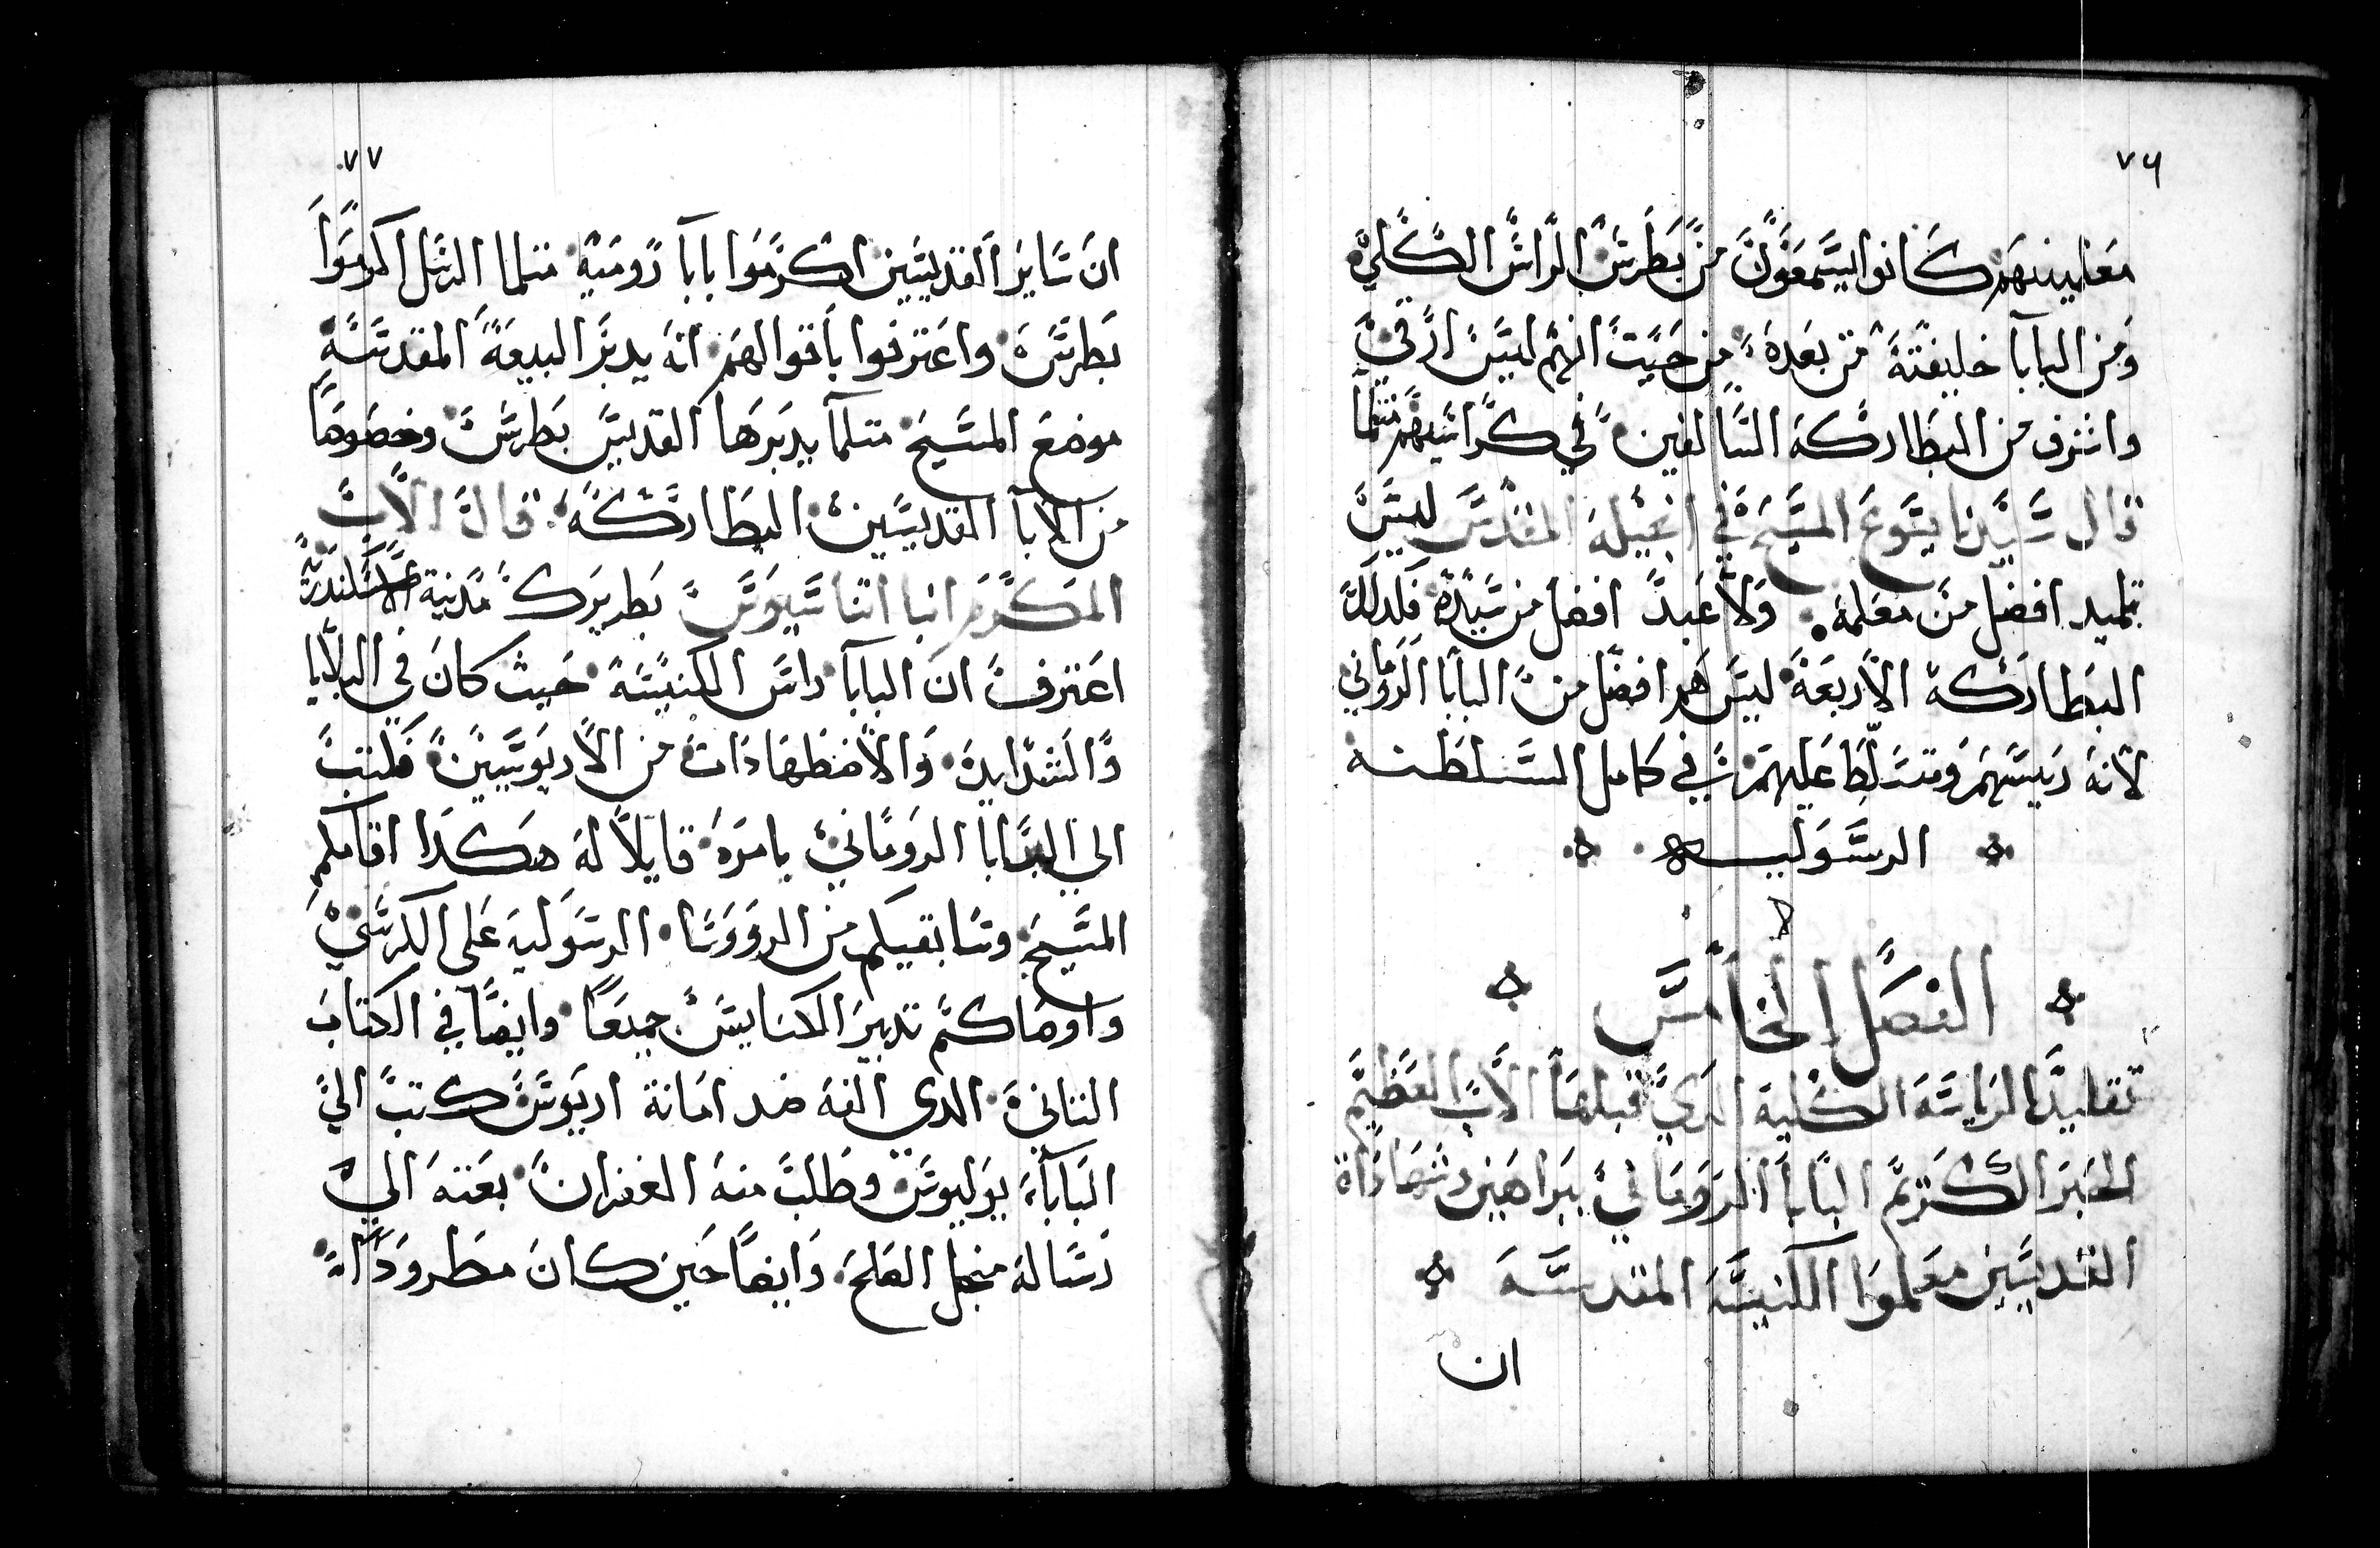 ٧٦
معاينينهم كانوا ليسمعون من بطرس الراس الكلي
ومن البابا خليفته من بعده من حيت انهم ليس ارفي
واشرف من البطاركة السالفين في كراسيهم متلما
قال سيدنا يسوع المسيح في انجيله المقدس ليس
تلميد افضل من معلمه ولا عبد افضل من سيده فلدلك
البطاركة الاربعة ليس هم افضل من البابا الروماني
لانه ريسهم ومتسلط عليهم في كامل السلطنه
الرسوليه
الفصل الخامس
تقليد الرياسه الكلية الدي قبلها الاب العظيم
الحبر الكريم البابا الروماني ببراهين وشهاداة
القديسين معلموا الكنيسه المقدسه
ان
٧٧
ان ساير القديسين اكرموا بابا رومية متلما الرسل اكرموا
بطرس واعترفوا باقوالهم انه يدبر البيعة المقدسة
موضع المسيح متلما يدبرها القديس بطرس وخصوصا
من الابا القديسين البطاركة قال الاب
المكرم انبا اتناسيوس بطريرك مدينة الاسكندرية
اعترف ان البابا راس الكنيسة حيث كان في البلايا
والشدايد والاضطهادات من الاريوسيين فكتب
الي البابا الروماني يامره قايلا له هكدا اقامكم
المسيح وسابقيكم من الرووسا الرسوليه على الكرسي
واوصاكم تدبير الكنايس جميعا وايضا في الكتاب
التاني الدي الفه ضد امانة اريوس كتب الي
البابا يوليوس وطلب منه الغفران بعته الي
رسالة منجل الصلح وايضا حين كان مطرودا